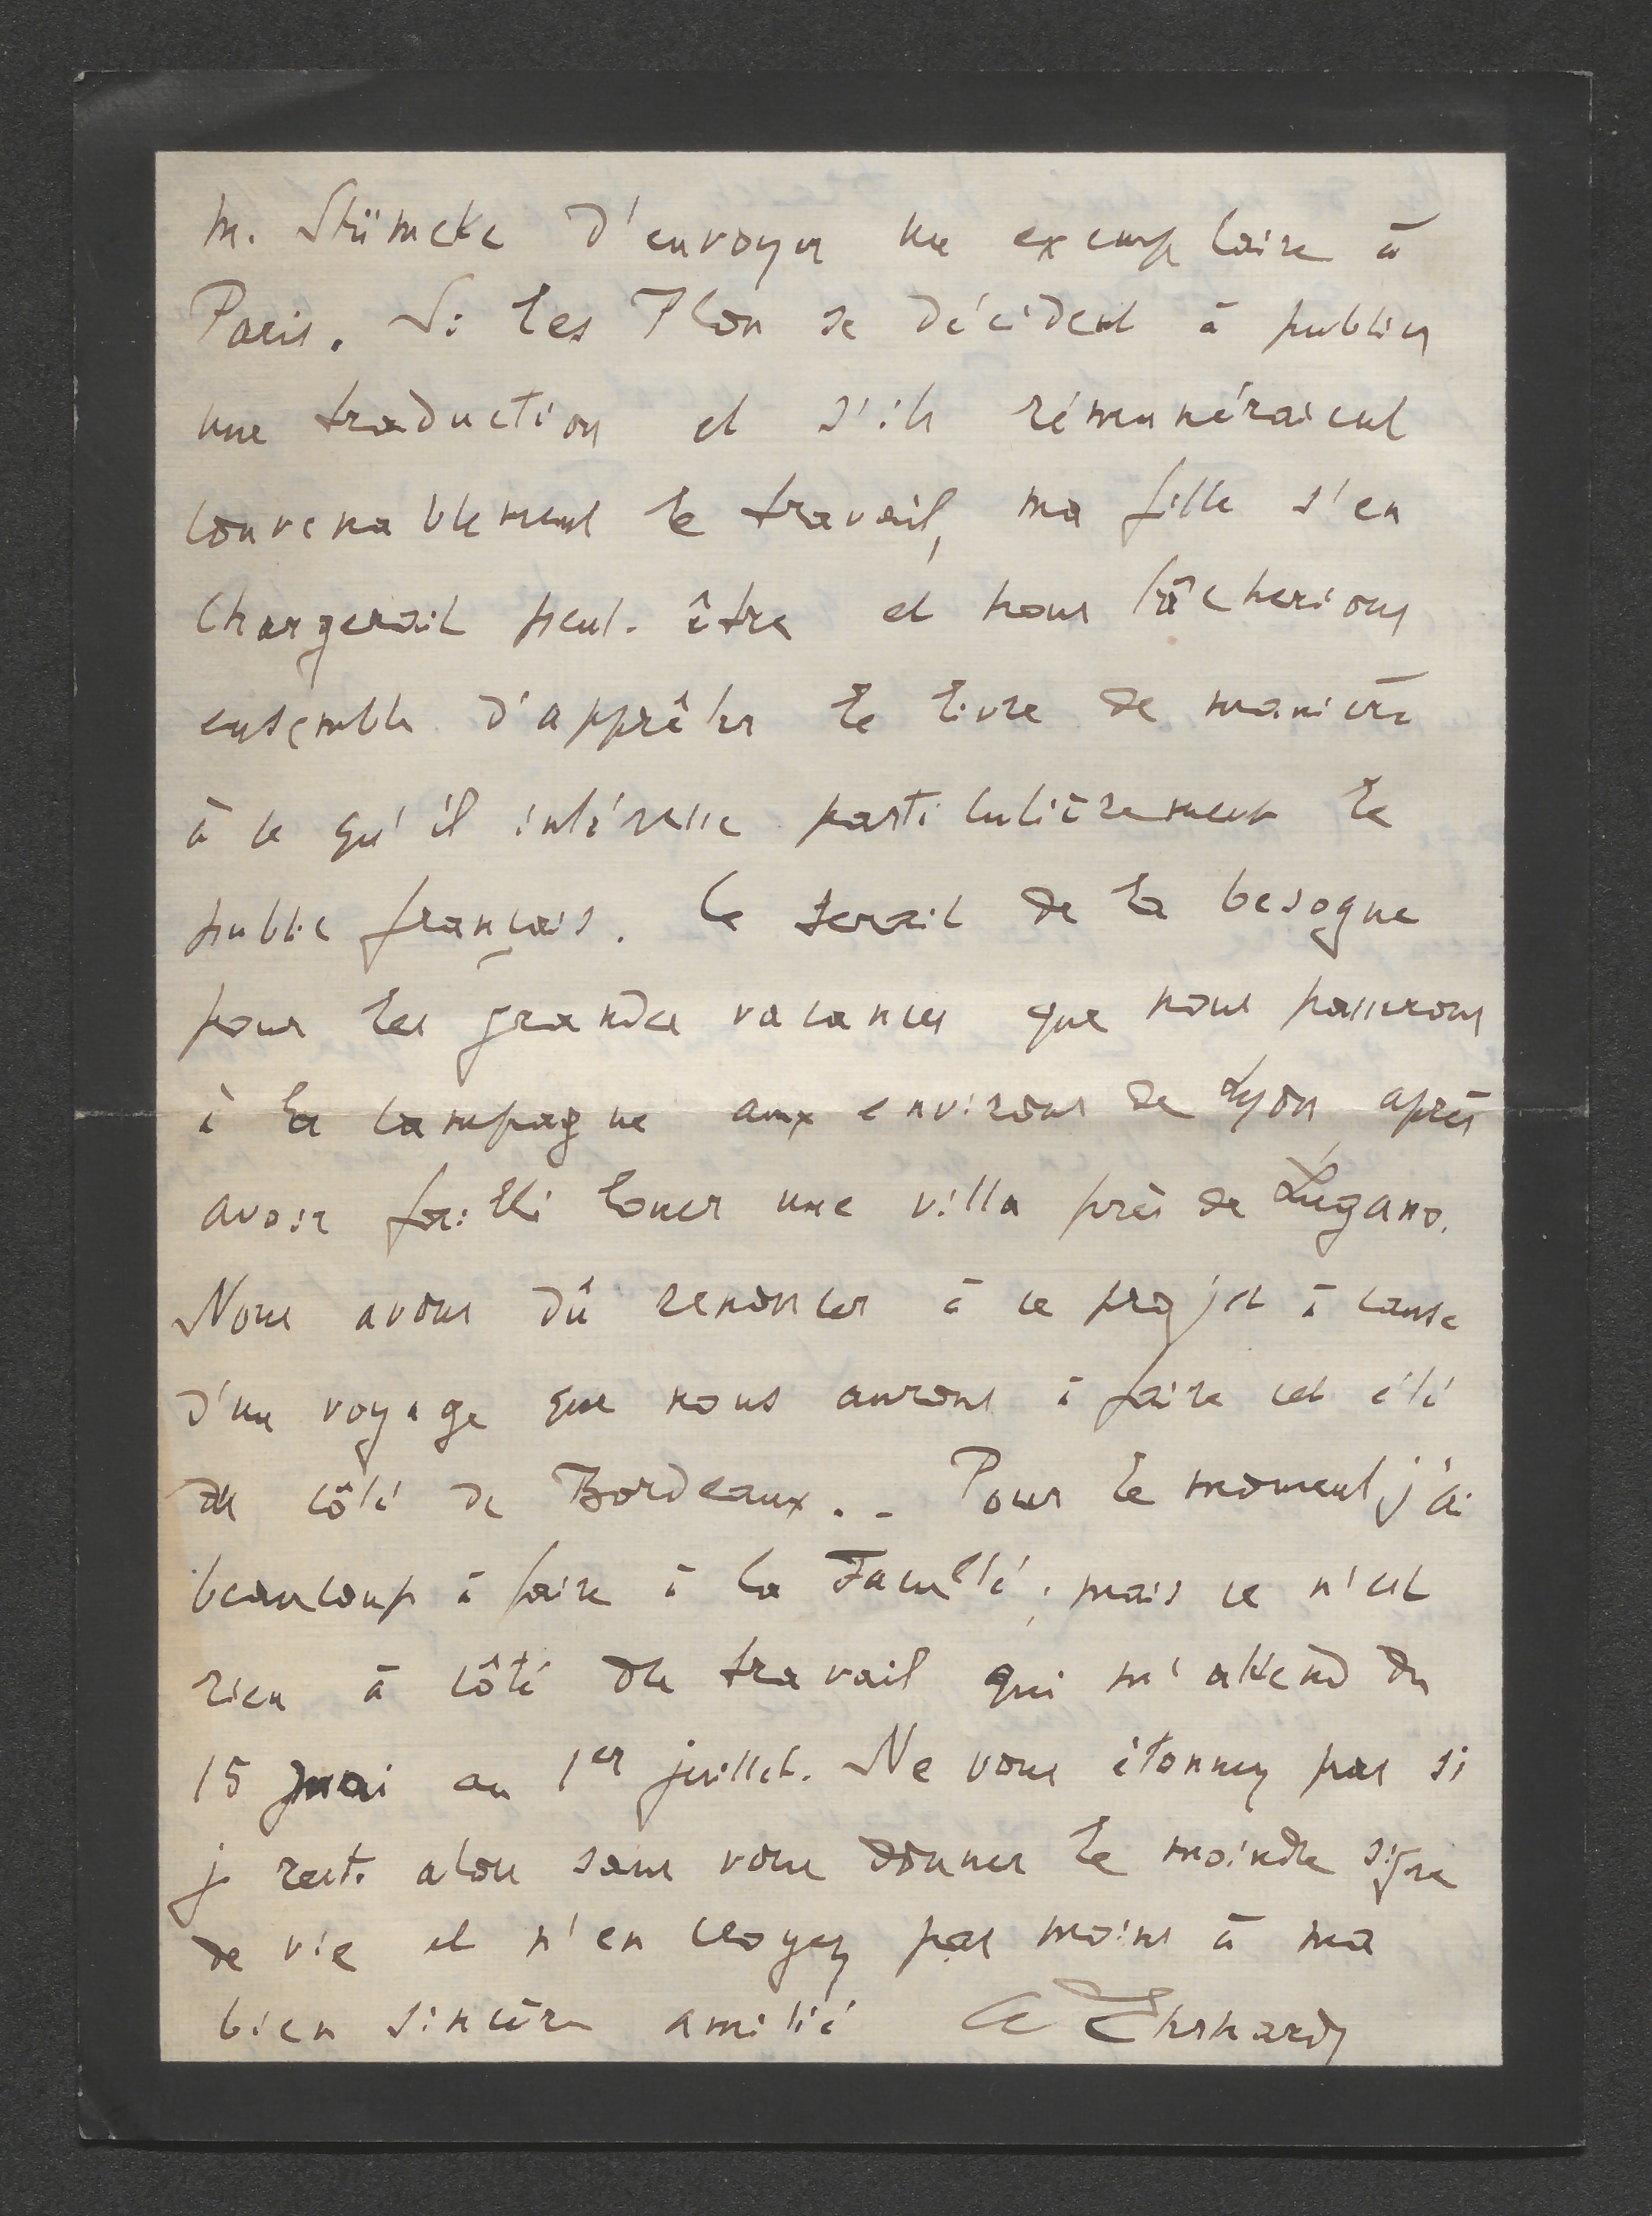 M. Stümcke d'envoyer un exemplaire à
Paris. Si les Plon se décident à publier
une traduction et s'ils rémunéraient
convenablement le travail, ma fille s'en
chargerait peut-être et nous tâcherions
ensemble d'apprêter le livre de manière
à ce qu'il intéresse particulièrement le
public français. Ce serait de la besogne
pour les grandes vacances que nous passerons
à la campagne aux environs de Lyon, après
avoir failli louer une villa près de Lugano.
Nous avons dû renoncer à ce projet à cause
d'un voyage que nous aurons à faire cet été
du côté de Bordeaux. - Pour le moment j'ai
beaucoup à faire à la Faculté; mais ce n'est
rien à côté du travail qui m'attend du
15 mai au 1er juillet. Ne vous étonnez pas si
je reste alors sans vous donner le moindre signe
de vie et n'en croyez pas moins à ma
bien sincère amitié A Ehrhard